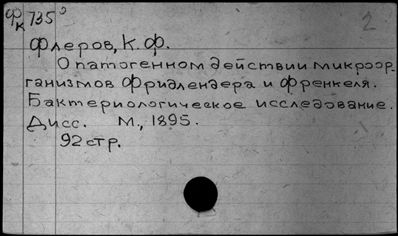 Фк 735⁰
2
Флеров, К. Ф.
О патогенном действии микроор-
ганизмов Фридлендера и Френкеля.
Бактериологическое исследование.
Дисс. М., 1895.
92 стр.